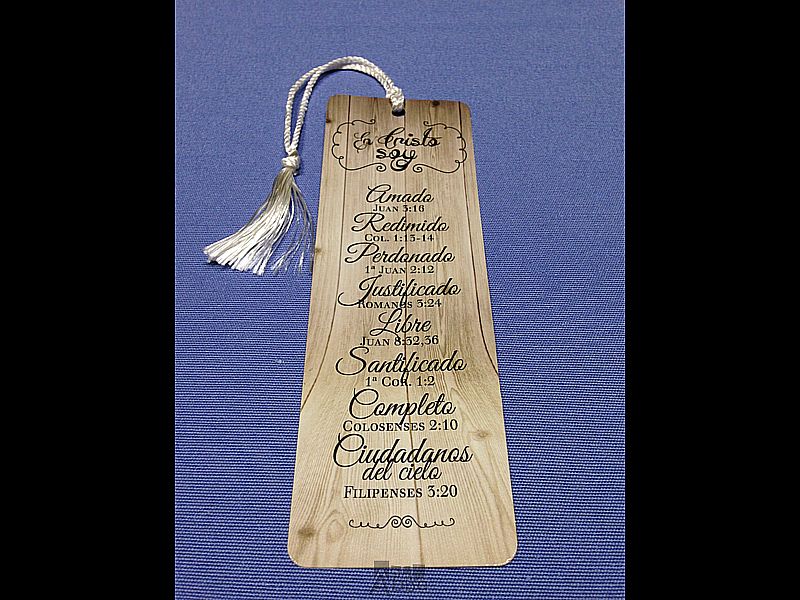 En Cristo
soy
Amado
Juan 3:16
Redimido
Col. 1:13-14
Perdonado
1ª Juan 2:12
Justificado
Romanos 3:24
Libre
Juan 8:32,36
Santificado
1ª Cor. 1:2
Completo
Colosenses 2:10
Ciudadanos
del cielo
Filipenses 3:20